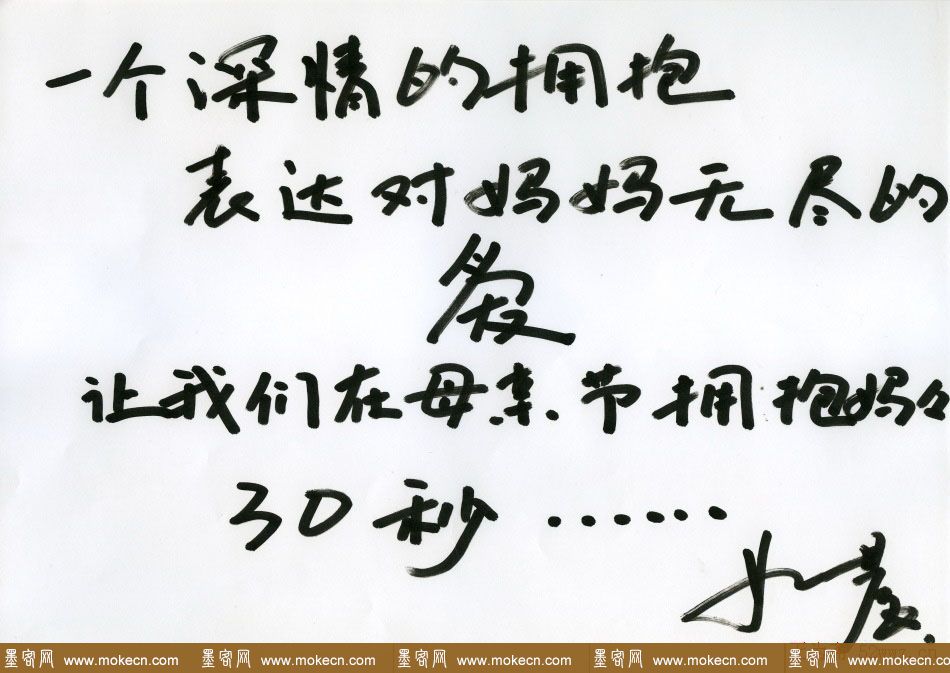 一个深情的拥抱
表达对妈妈无尽的
爱
让我们在母亲节拥抱妈々
30秒……
墨客网 www.mokecn.com 墨客网 www.mokecn.com 墨客网 www.mokecn.com 墨客网 www.mokecn.com